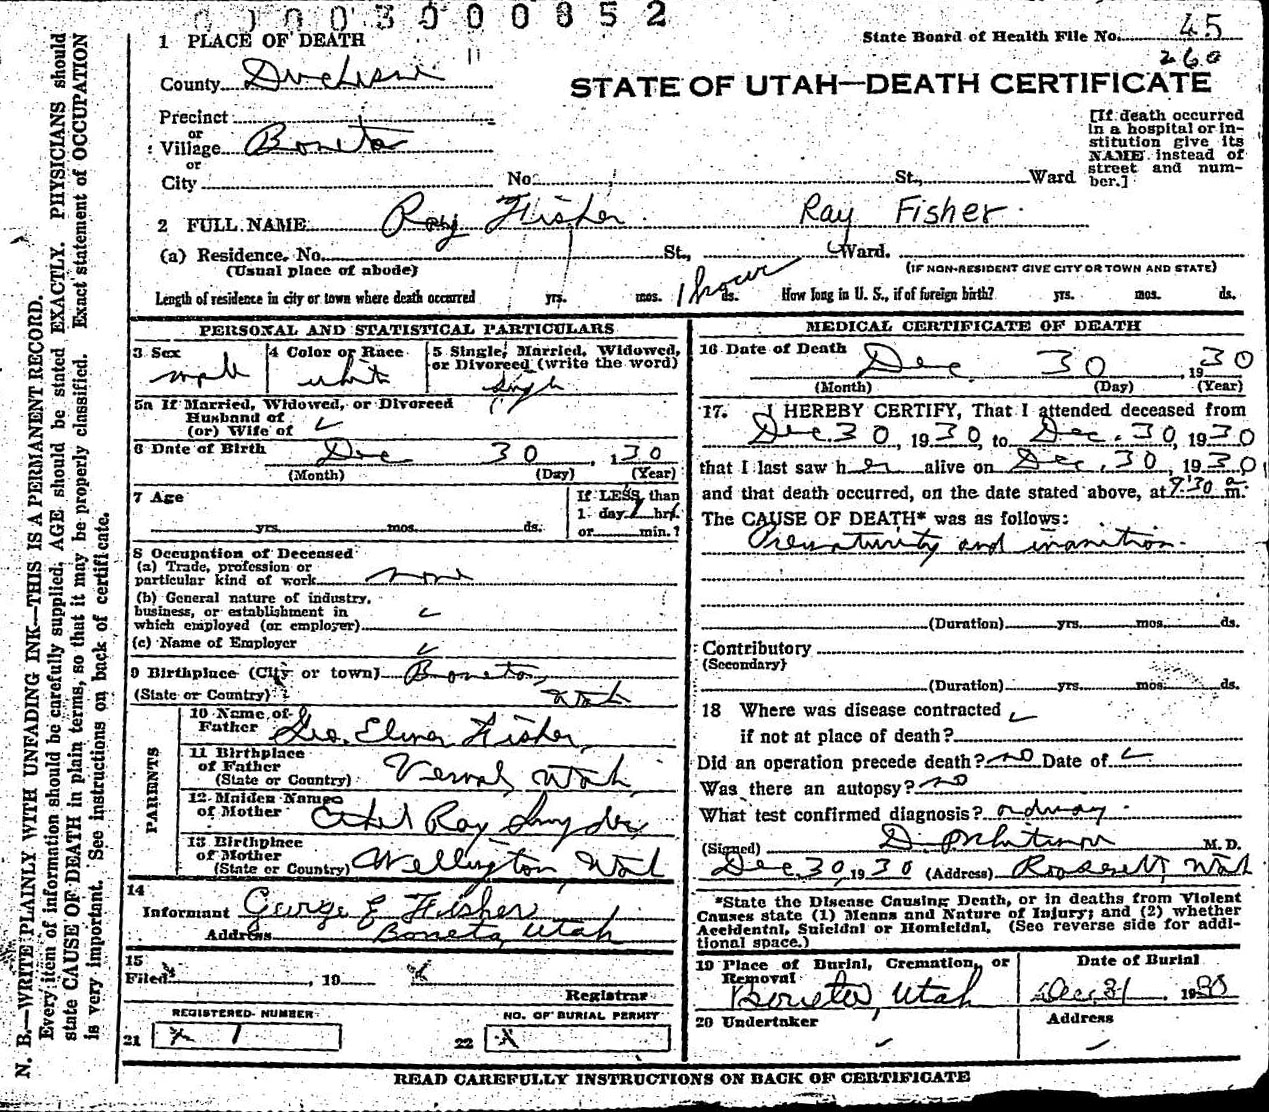 0000300085 2
1 PLACE OF DEATH
State Board of Health File No. 45
260
County Duchesne 11
STATE OF UTAH—DEATH CERTIFICATE
Precinct
or
Village Boneta
or
City No. St., Ward
[If death occurred in a hospital or institution give its NAME instead of street and number.]
2 FULL NAME Ray Fisher Ray Fisher
(a) Residence. No. St., Ward.
(Usual place of abode) (IF NON-RESIDENT GIVE CITY OR TOWN AND STATE)
Length of residence in city or town where death occurred yrs. mos. 1 hour ds. How long in U. S., if of foreign birth? yrs. mos. ds.
PERSONAL AND STATISTICAL PARTICULARS
3 Sex male
4 Color or Race white
5 Single, Married, Widowed, or Divorced (write the word) Single
5a If Married, Widowed, or Divorced
Husband of
(or) Wife of
6 Date of Birth Dec 30, 130
(Month) (Day) (Year)
7 Age yrs. mos. ds.
If LESS than
1 day 1 hrs.
or min.?
8 Occupation of Deceased
(a) Trade, profession or
particular kind of work none
(b) General nature of industry,
business, or establishment in
which employed (or employer)
(c) Name of Employer
9 Birthplace (City or town) Boneta,
(State or Country) Utah
PARENTS
10 Name of
Father Geo. Elmer Fisher,
11 Birthplace
of Father
(State or Country) Vernal, Utah,
12 Maiden Name
of Mother Ethel Ray Snyder,
13 Birthplace
of Mother
(State or Country) Wellington, Utah
14
Informant George E Fisher
Address Boneta, Utah
15
Filed , 19
Registrar
REGISTERED NUMBER
21 x 1
NO. OF BURIAL PERMIT
22 x
MEDICAL CERTIFICATE OF DEATH
16 Date of Death Dec 30, 1930
(Month) (Day) (Year)
17. I HEREBY CERTIFY, That I attended deceased from
Dec 30, 1930 to Dec. 30, 1930
that I last saw her alive on Dec. 30, 1930
and that death occurred, on the date stated above, at 9:30 a m.
The CAUSE OF DEATH* was as follows:
Prematurity and inanition.
(Duration) yrs. mos. ds.
Contributory
(Secondary)
(Duration) yrs. mos. ds.
18 Where was disease contracted
if not at place of death?
Did an operation precede death? no Date of
Was there an autopsy? no
What test confirmed diagnosis?
(Signed) M. D.
Dec 30, 1930 (Address) Roosevelt, Utah
*State the Disease Causing Death, or in deaths from Violent
Causes state (1) Means and Nature of Injury; and (2) whether
Accidental, Suicidal or Homicidal. (See reverse side for additional space.)
19 Place of Burial, Cremation, or
Removal
Boneta, Utah
Date of Burial
Dec 31, 1930
20 Undertaker
Address
READ CAREFULLY INSTRUCTIONS ON BACK OF CERTIFICATE
N. B.—WRITE PLAINLY WITH UNFADING INK—THIS IS A PERMANENT RECORD.
Every item of information should be carefully supplied. AGE should be stated EXACTLY. PHYSICIANS should
state CAUSE OF DEATH in plain terms, so that it may be properly classified. Exact statement of OCCUPATION
is very important. See instructions on back of certificate.